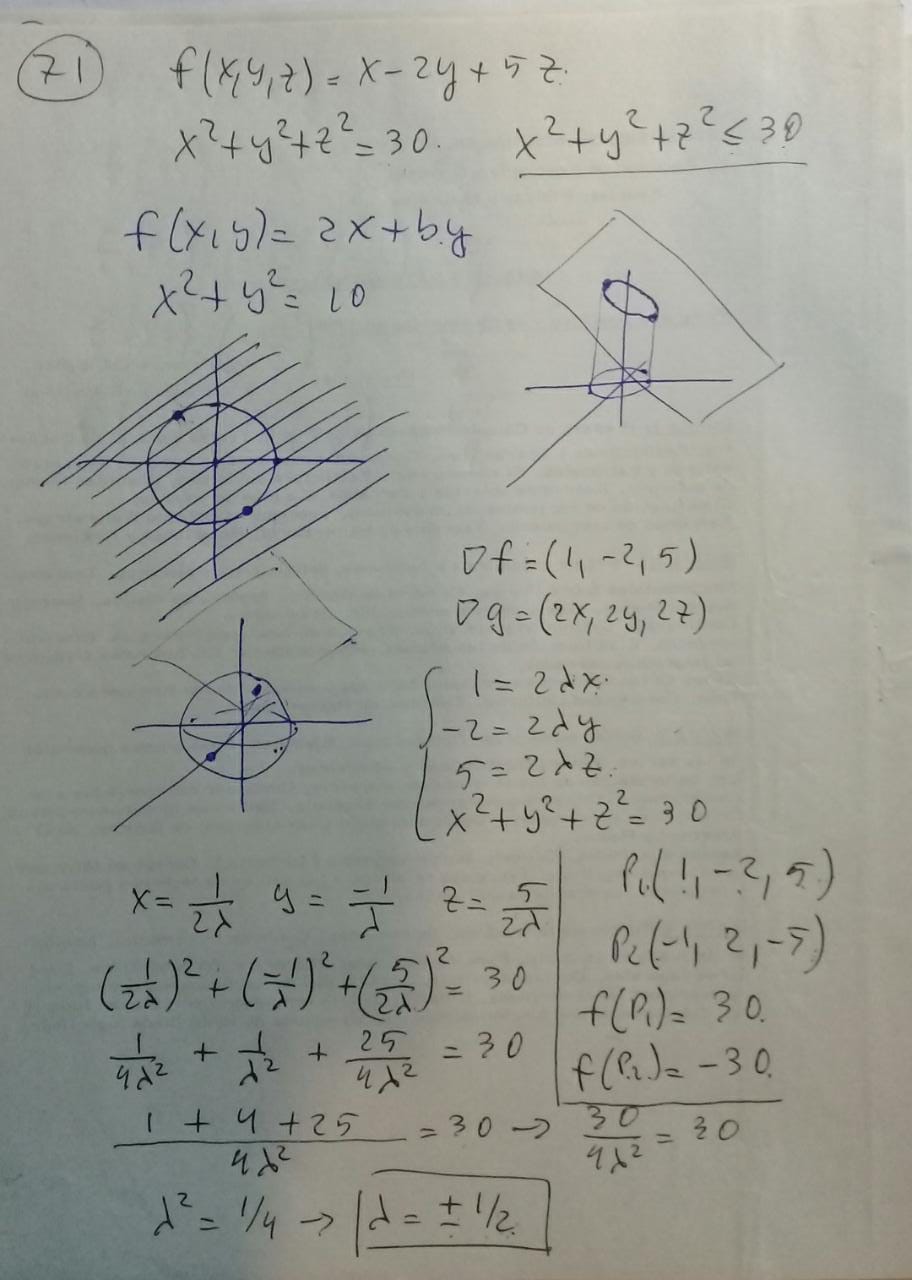 71
f(x,y,z) = x - 2y + 5z.
x²+y²+z² = 30. x²+y²+z² ≤ 30
f(x,y) = 2x+by
x²+y² = 10
∇f = (1, -2, 5)
∇g = (2x, 2y, 2z)
1 = 2λx.
-2 = 2λy
5 = 2λz.
x²+y²+z² = 30
x = 1/2λ y = -1/λ z = 5/2λ
(1/2λ)² + (-1/λ)² + (5/2λ)² = 30
1/4λ² + 1/λ² + 25/4λ² = 30
(1 + 4 + 25)/4λ² = 30 → 30/4λ² = 30
λ² = 1/4 → λ = ± 1/2
P₁(1, -2, 5)
P₂(-1, 2, -5)
f(P₁) = 30.
f(P₂) = -30.